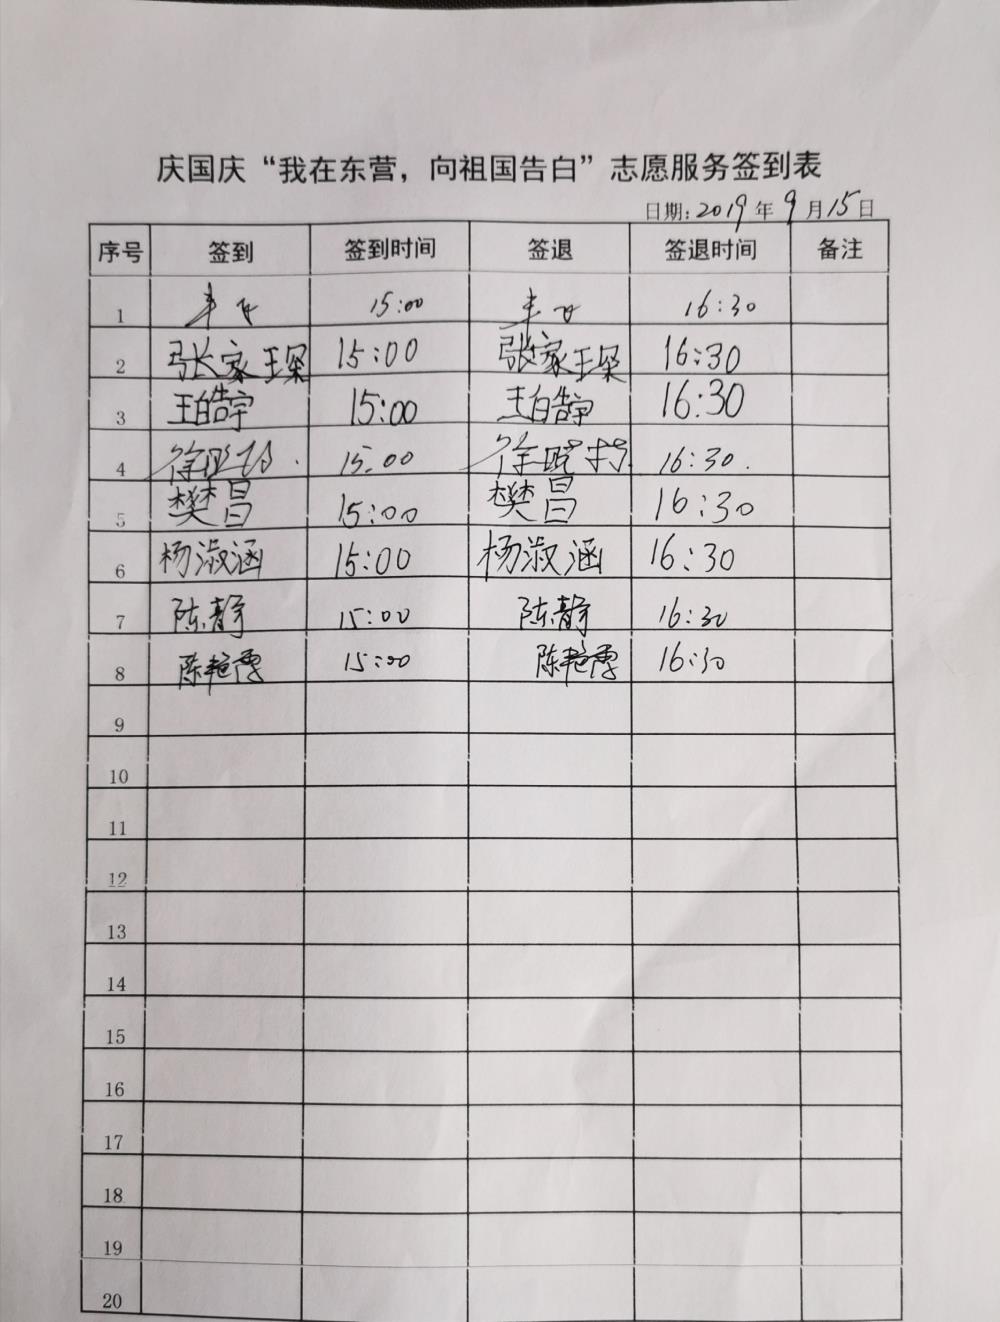 庆国庆“我在东营，向祖国告白”志愿服务签到表
日期：2019年9月15日
序号 签到 签到时间 签退 签退时间 备注
1 15:00 16:30
2 张家琛 15:00 张家琛 16:30
3 王皓宇 15:00 王皓宇 16:30
4 徐晓 15:00 徐晓 16:30.
5 樊昌 15:00 樊昌 16:30
6 杨淑涵 15:00 杨淑涵 16:30
7 陈静 15:00 陈静 16:30
8 陈艳霞 15:00 陈艳霞 16:30
9
10
11
12
13
14
15
16
17
18
19
20